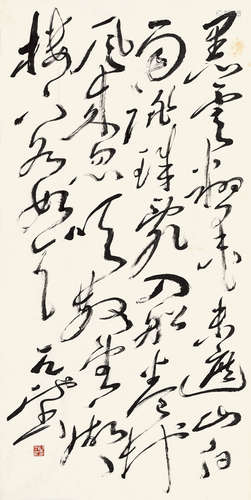 黑雲翻墨未遮山白
雨跳珠亂入船卷地
風來忽吹散望湖
樓下水如天